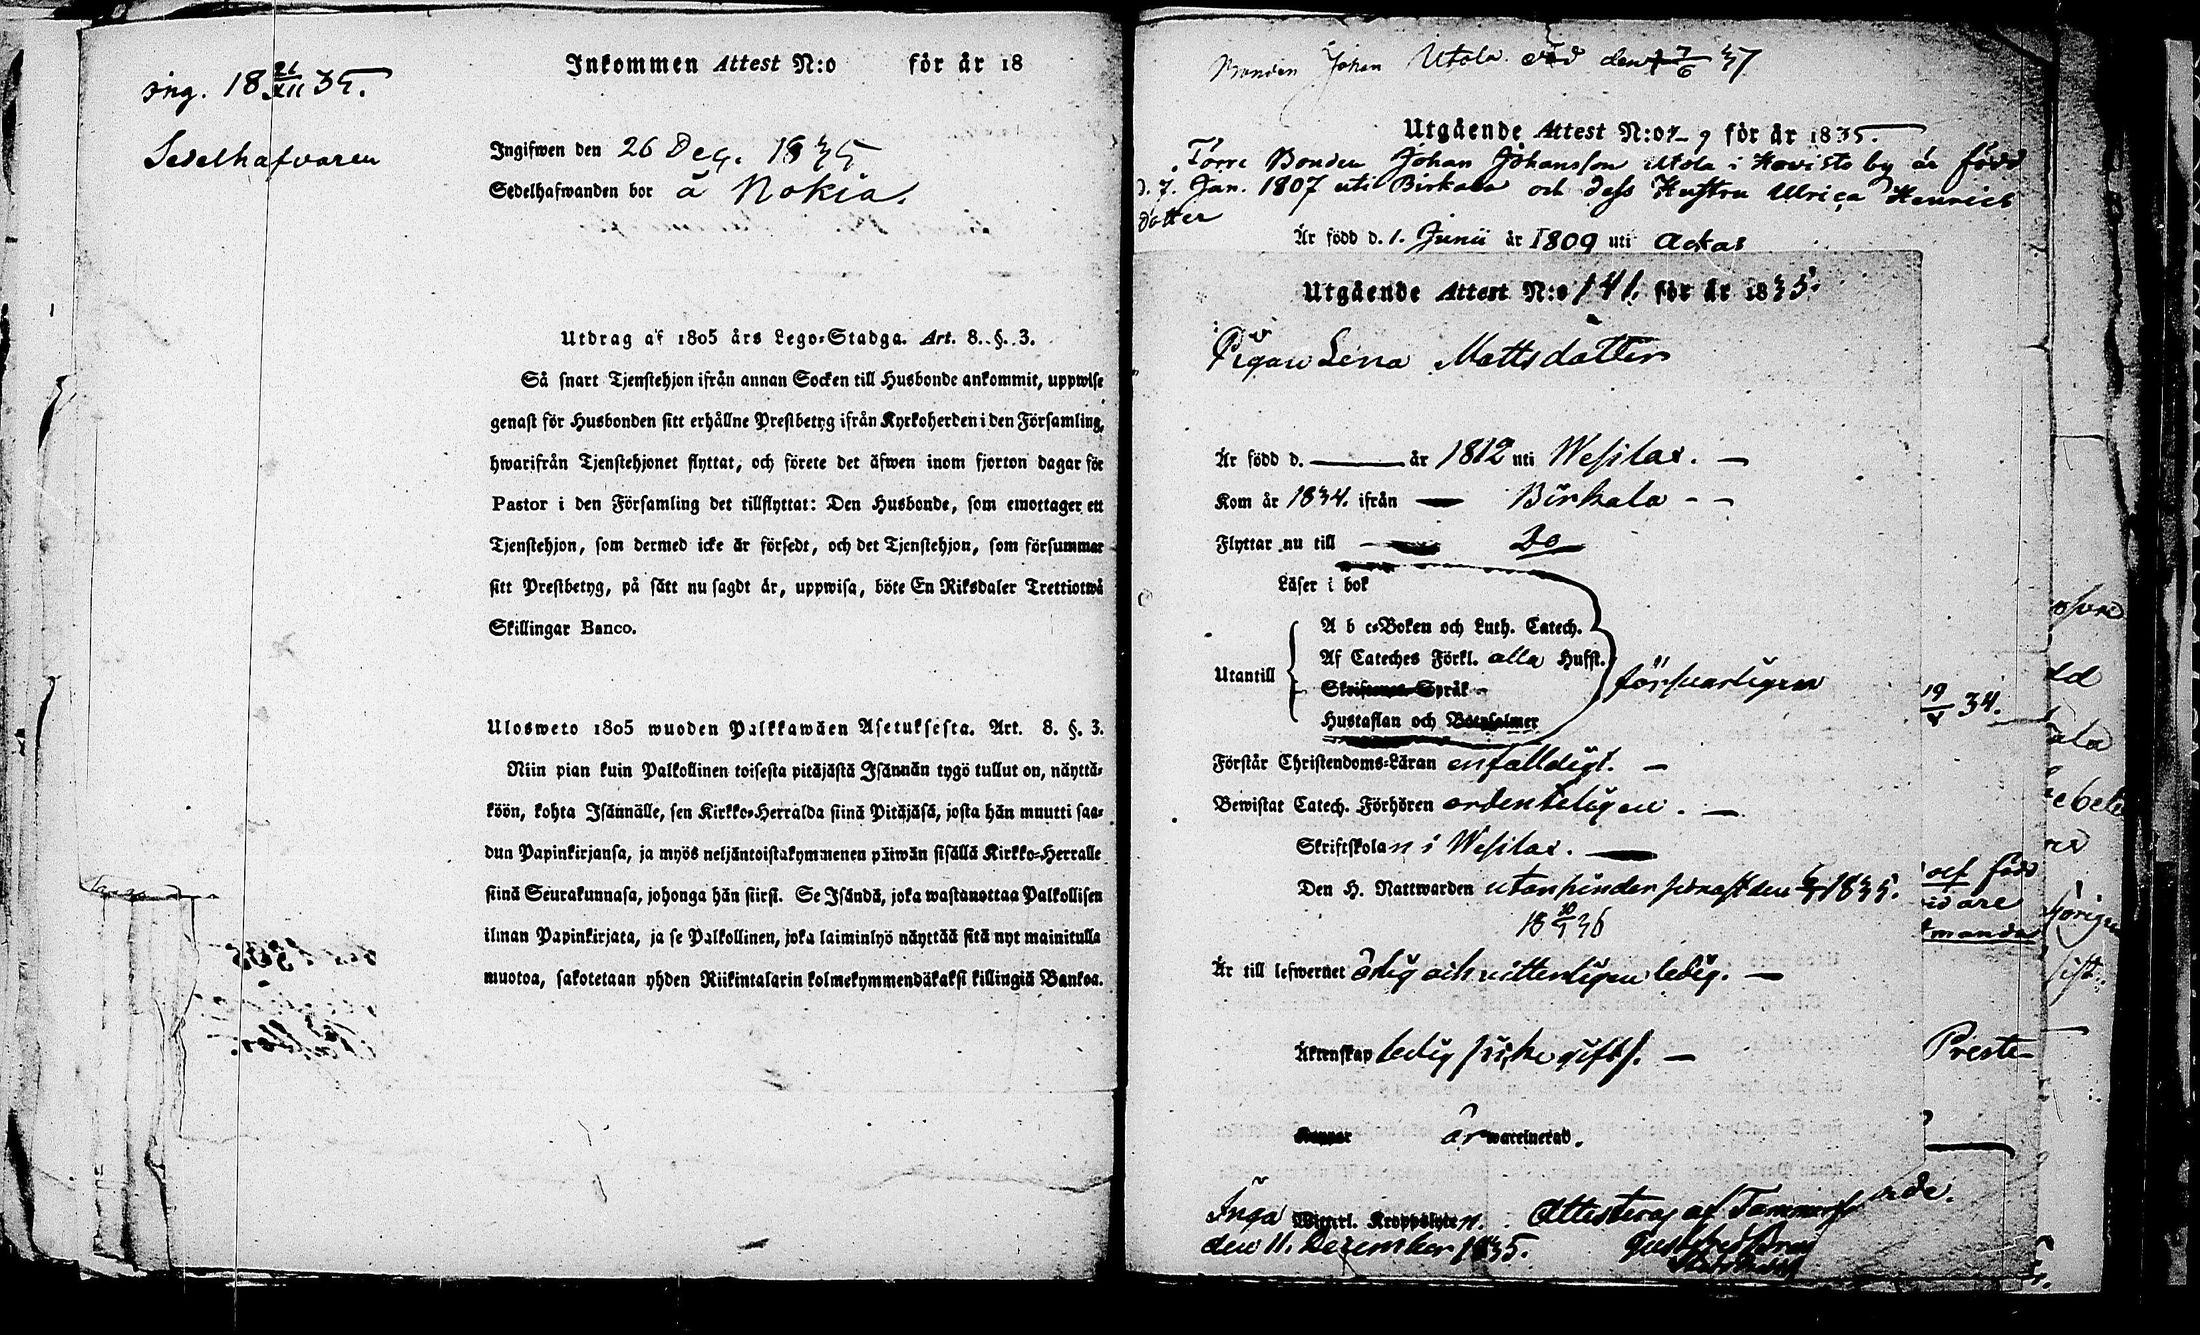 Inkommen Attest N:o för år 18
ing. 18 26/XII 35.
Sedelhafvaren
Ingifwen den 26 Dec. 1835
Sedelhafwanden bor å Nokia.
Utdrag af 1805 års Lego-Stadga. Art. 8. §. 3.
Så snart Tjenstehjon ifrån annan Socken till Husbonde ankommit, uppwise
genast för Husbonden sitt erhållne Prestbetyg ifrån Kyrkoherden i den Församling,
hwarifrån Tjenstehjonet flyttat, och förete det äfwen inom fjorton dagar för
Pastor i den Församling det tillflyttat: Den Husbonde, som emottager ett
Tjenstehjon, som dermed icke är försedt, och det Tjenstehjon, som försummar
sitt Prestbetyg, på sätt nu sagdt är, uppwisa, böte En Riksdaler Trettiotwå
Skillingar Banco.
Ulosweto 1805 wuoden Palkkawäen Asetuksesta. Art. 8. §. 3.
Niin pian kuin Palkollinen toisesta pitäjästä Isännän tygö tullut on, näyttä-
köön, kohta Isännälle, sen Kirkko-Herralda siinä Pitäjäsä, josta hän muutti saa-
dun Papinkirjansa, ja myös neljäntoistakymmenen päiwän sisällä Kirkko-Herralle
siinä Seurakunnasa, johonga hän siirsi. Se Isändä, joka wastanottaa Palkollisen
ilman Papinkirjata, ja se Palkollinen, joka laiminlyö näyttää sitä nyt mainitulla
muotoa, sakotetaan yhden Riikintalarin kolmekymmendäkaksi killingiä Bankoa.
Bonden Johan Utola död den 7/6 37
Utgående Attest N:o 7-9 för år 1835.
Förre Bonden Johan Johansson Utola i Hovisto by är född
d. 7. Jan. 1807 uti Birkala och dess Hustru Ulrica Henrics
dotter
Är född d. 1. Junii år 1809 uti Ackas
Utgående Attest N:o 141. för år 1835.
Pigan Lena Mattsdotter
Är född d. — år 1812 uti Wesilax. —
Kom år 1834. ifrån — Birkala - -
Flyttar nu till — Do
Läser i bok
A b c-Boken och Luth. Catech.
Af Cateches Förkl. alla Hufst.
Utantill försvarligen
Skriftenes Språk
Hustaflan och Botpsalmer
19/V 34.
Förstår Christendoms-Läran enfalldigt. —
Bewistat Catech. Förhören ordenteligen. —
Skriftskolan i Wesilax. —
Den H. Nattwarden utan hinder senast den 1835.
18 10/1 36
Är till lefwernet ärlig och vitterligen ledig. —
Äktenskap ledig [icke gift]. —
Preste-
Koppor är waccinerad.
Inga Wisserl. Kroppslyten. Attesteras af Tammerfors
den 11. December 1835.